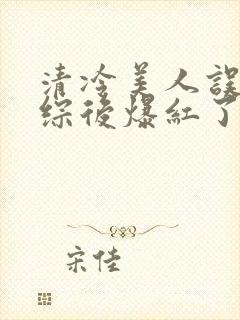 清冷美人誤
綜後爆紅了
宋佳